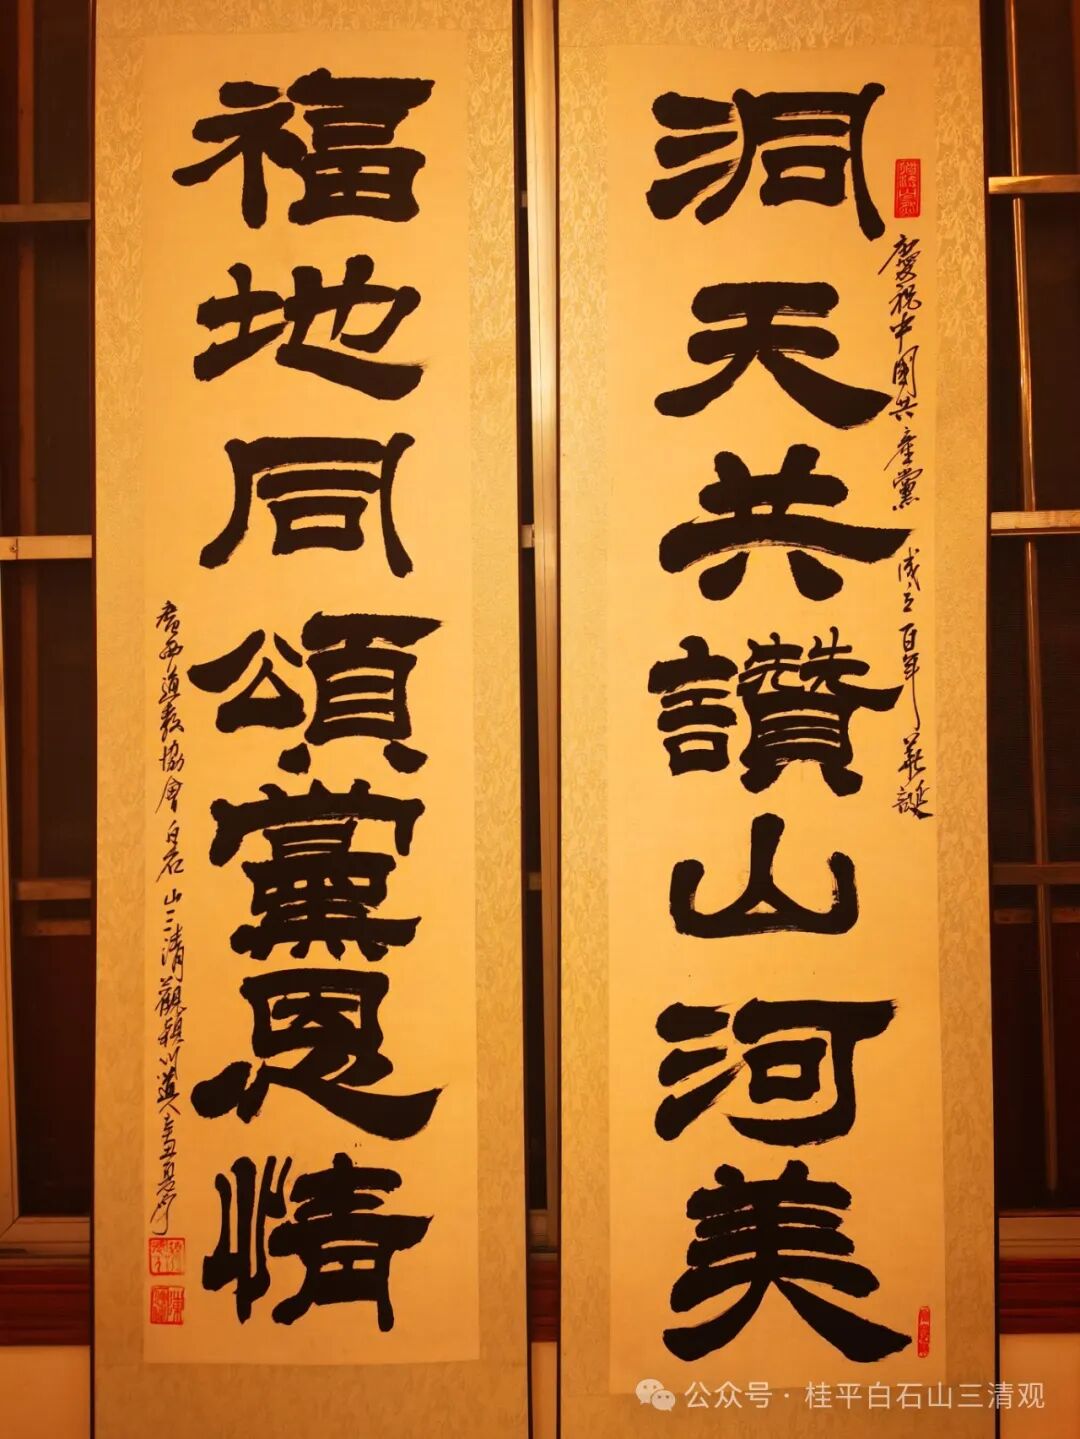 洞天共讚山河美
慶祝中國共產黨成立百年華誕
福地同頌黨恩情
廣西道教協會白石山三清觀穎川道人辛丑夏書
公众号 · 桂平白石山三清观